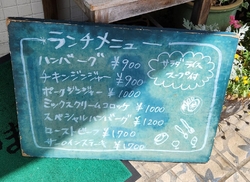 ランチメニュー
ハンバーグ ¥900
チキンジンジャー ¥900
ポークジンジャー ¥1000
ミックスクリームコロッケ ¥1000
スペシャルハンバーグ ¥1200
ローストビーフ ¥1700
サーロインステーキ ¥1700
サラダ ライス
スープ付
ま